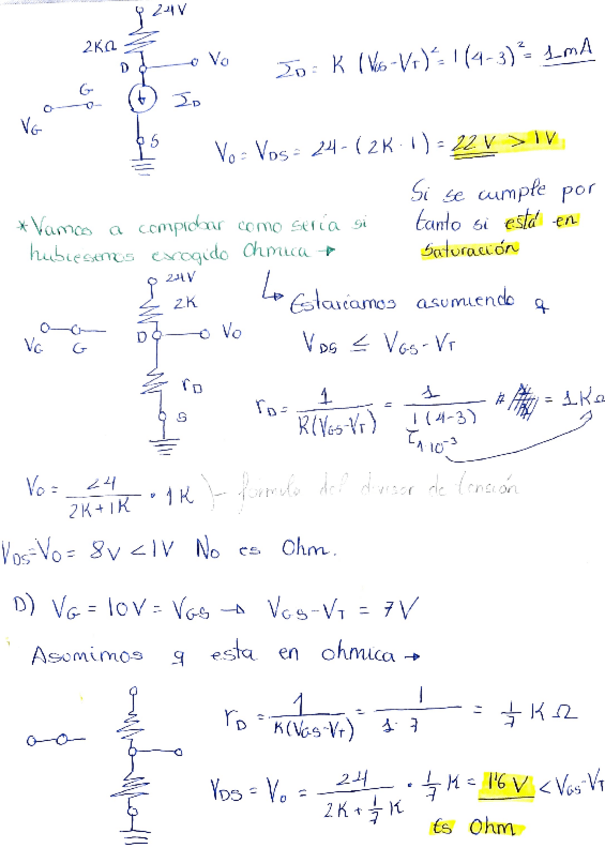 24V
2KΩ
D
Vo
G
I_D
V_G
S
I_D = K (V_GS - V_T)² = 1(4-3)² = 1mA
Vo = V_DS = 24 - (2K · 1) = 22V > 1V
Si se cumple por
tanto si está en
saturación
*Vamos a comprobar como sería si
hubiesemos escogido Ohmica →
↳ Estaríamos asumiendo q
V_DS ≤ V_GS - V_T
24V
2K
V_G
G
D
Vo
r_D
S
r_D = 1 / K(V_GS-V_T) = 1 / 1(4-3) = 1KΩ
1·10⁻³
Vo = 24 / 2K+1K · 1K }- fórmula del divisor de tensión
V_DS=Vo = 8V < 1V No es Ohm.
D) V_G = 10V = V_GS → V_GS-V_T = 7V
Asumimos q esta en ohmica →
r_D = 1 / K(V_GS-V_T) = 1 / 1·7 = 1/7 KΩ
V_DS = Vo = 24 / 2K + 1/7 K · 1/7 K = 1'6 V < V_GS-V_T
Es Ohm